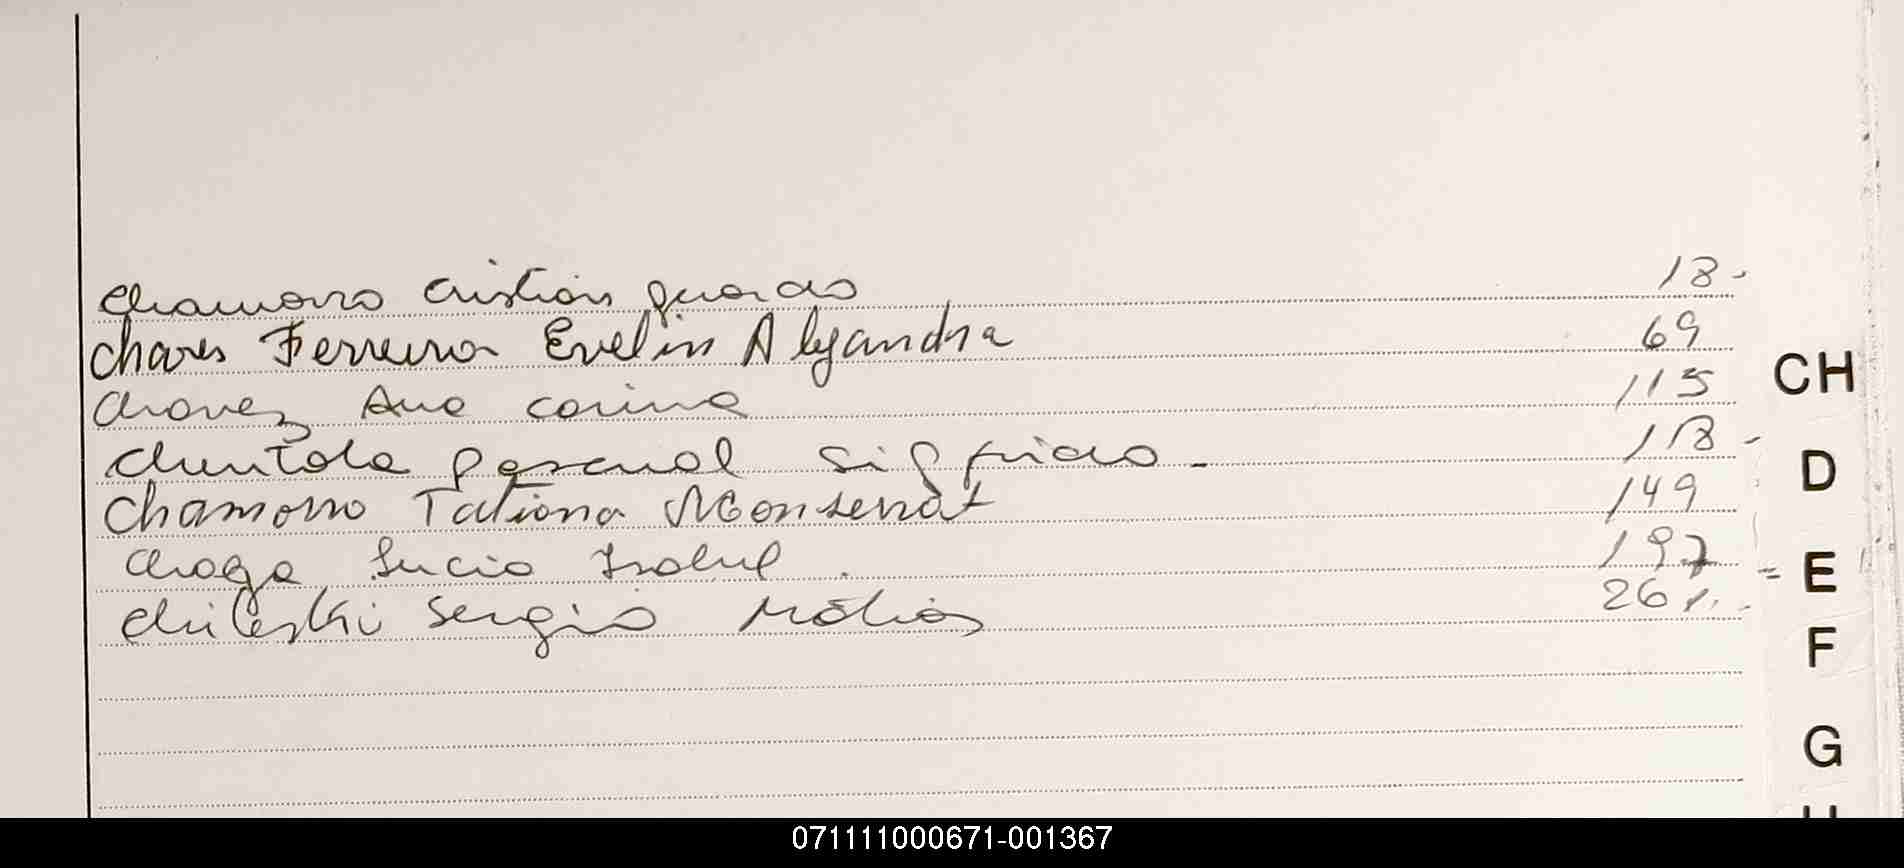 Chamorro Cristian 18.
Chaves Ferreira Evelin Alejandra 69
Chavez Ana Corina 115
Pascual Sigfrido. 118
Chamorro Tatiana Monserrat 149
Chaga Lucia Isabel. 197
Chileski Sergio Matias
CH
D
E
F
G
071111000671-001367